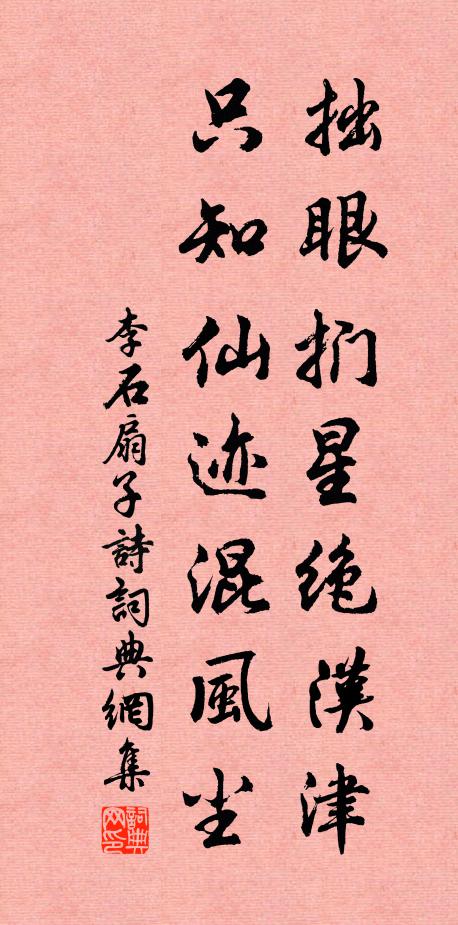 拙眼扪星绝漢津
只知仙迹混風尘
李石扇子詩詞典網集
詞典网印